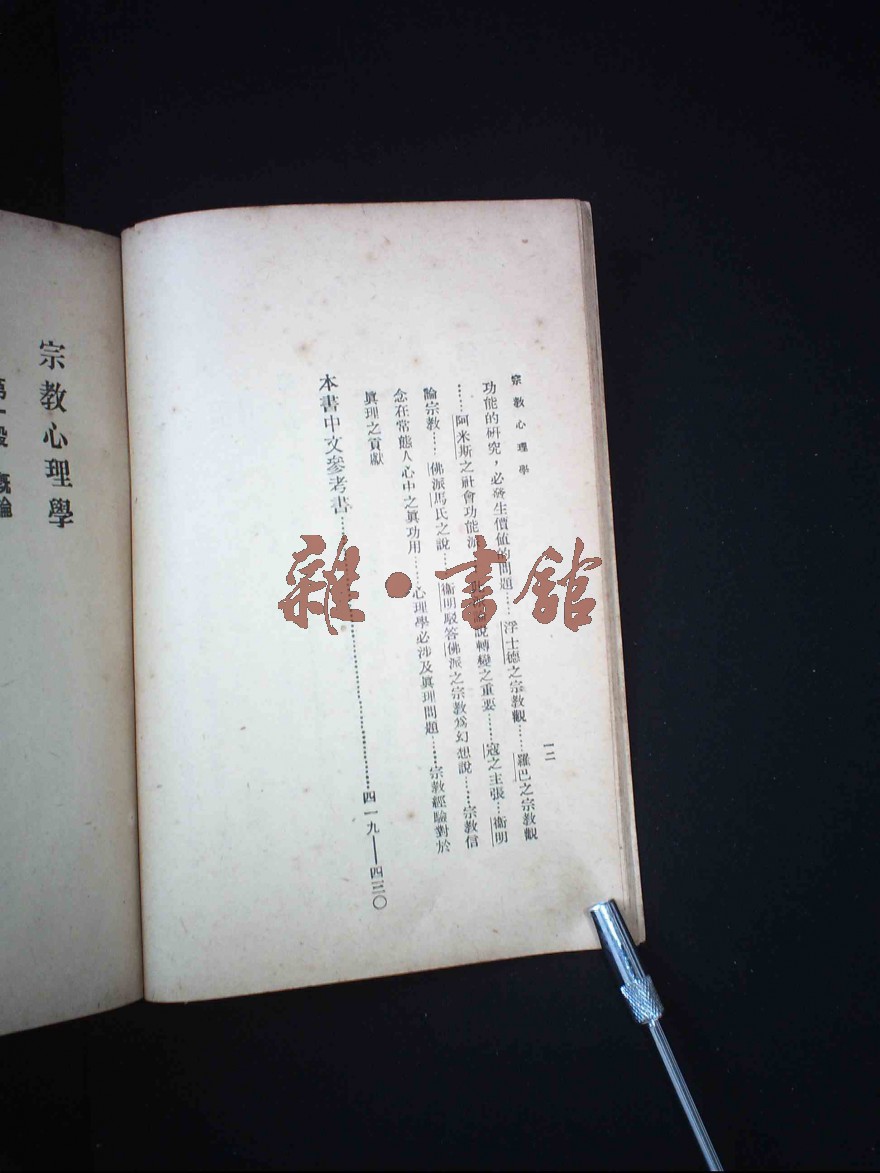 宗教心理學
一二
功能的研究，必發生價値的問題……浮士德之宗教觀……羅巴之宗教觀
……阿米斯之社會功能派說轉變之重要……寇之主張……衞明
論宗教……佛派馬氏之說……衞明駁答佛派之宗教爲幻想說……宗教信
念在常態人心中之眞功用……心理學必涉及眞理問題……宗教經驗對於
眞理之貢獻
本書中文參考書……四一九——四三〇
宗教心理學
第一段 概論
雜·書館